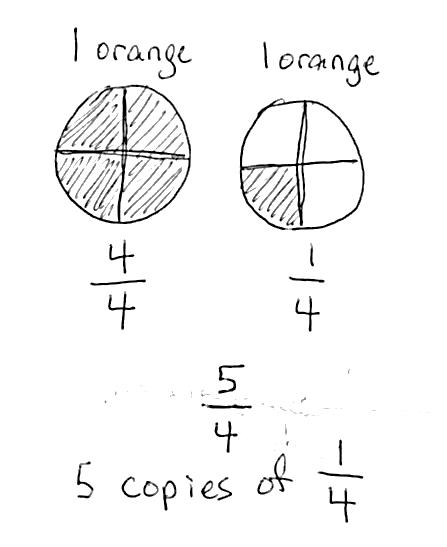 1 orange 1 orange
4/4 1/4
5/4
5 copies of 1/4